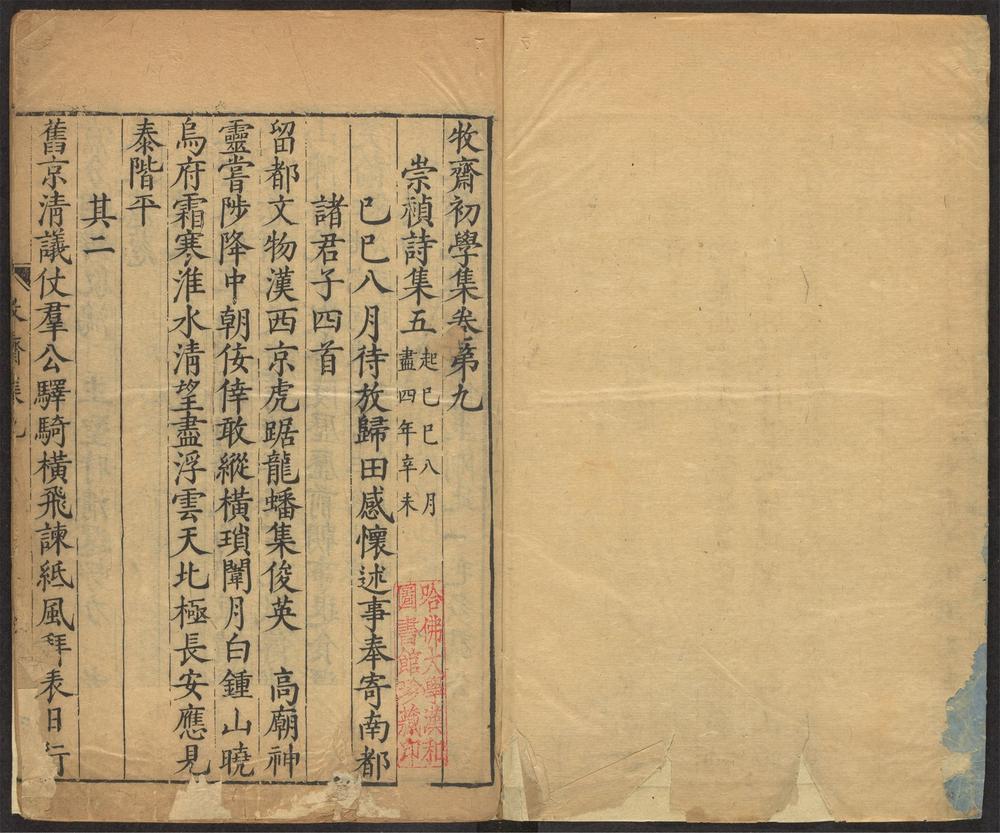 牧齋初學集卷第九
崇禎詩集五 起己巳八月
盡四年辛未
己巳八月待放歸田感懷述事奉寄南都
諸君子四首
留都文物漢西京虎踞龍蟠集俊英 高廟神
靈嘗陟降中朝佞倖敢縱橫瑣闈月白鍾山曉
烏府霜寒淮水清望盡浮雲天北極長安應見
泰階平
其二
舊京清議仗羣公驛騎橫飛諫紙風拜表日行
牧齋集九
哈佛大學漢和
圖書館珍藏印